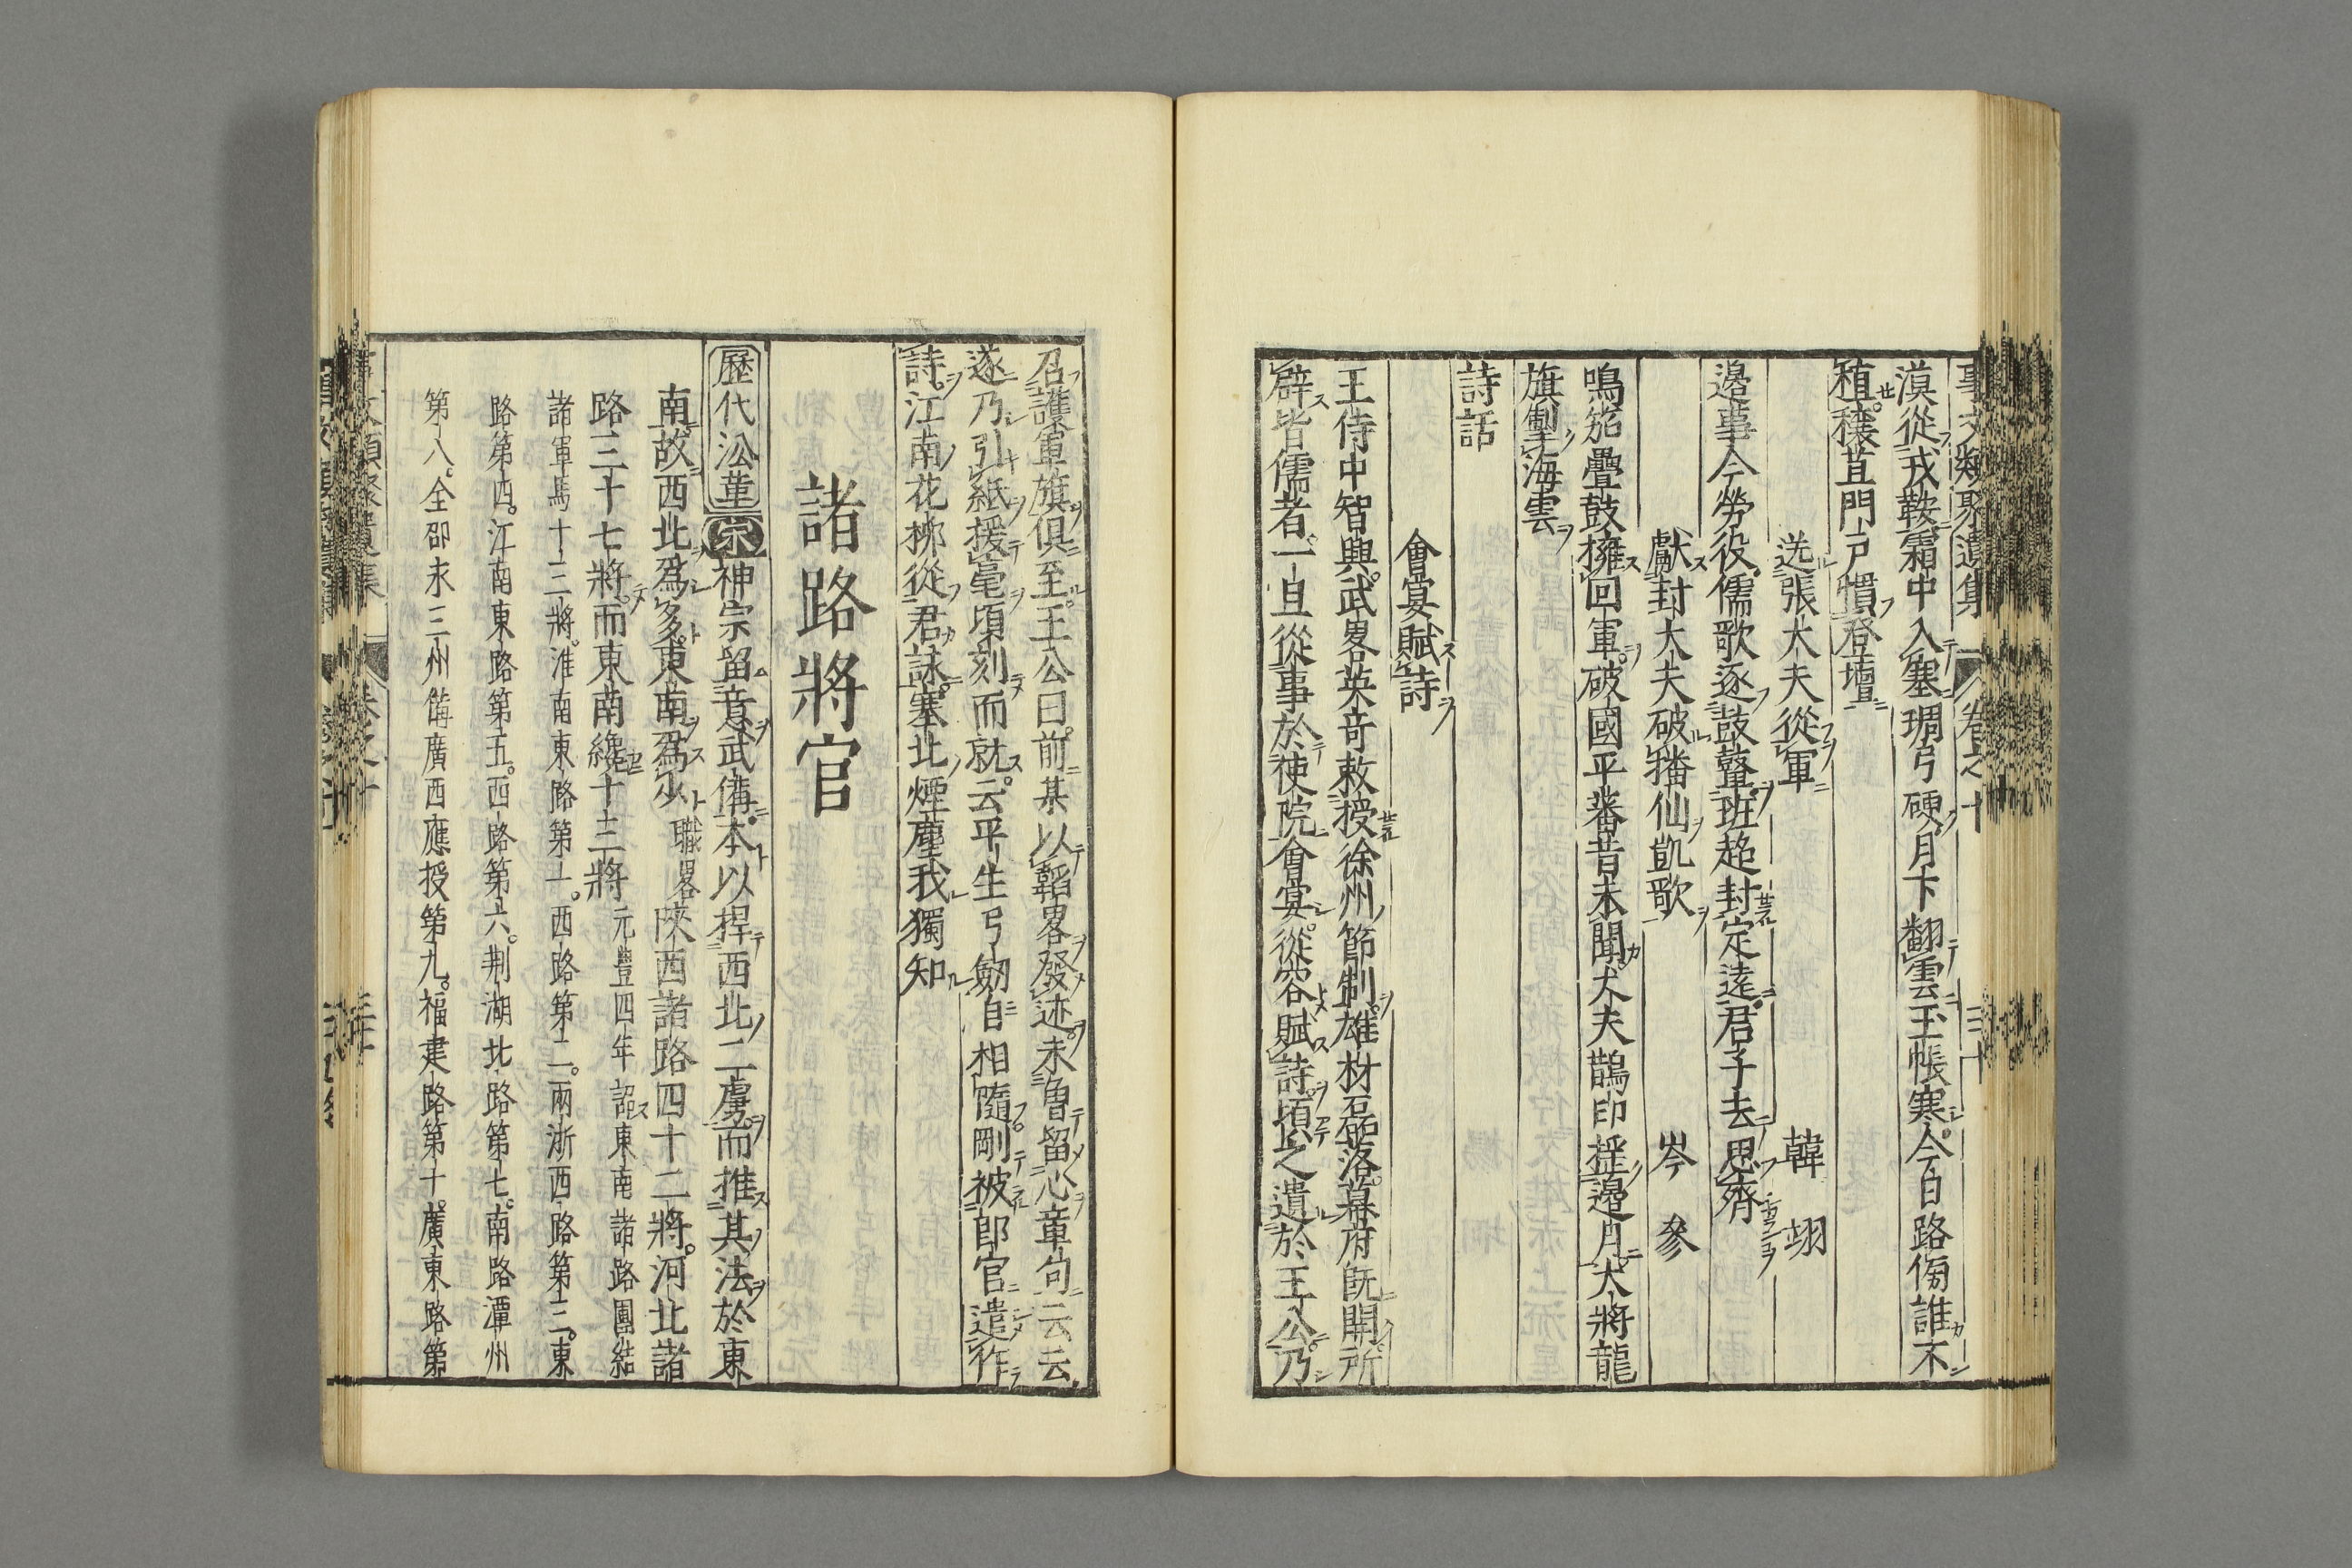 事文類聚遺集 卷之十 三十
漠從戎鞍霜中入塞琱弓硬月下翻雲玉帳寒今日路傍誰不
穜穰苴門戸慣登壇
送張大夫從軍 韓翊
邉事今勞役儒歌逐鼓鼙班超封定遠君子去思齊
獻封大夫破播仙凱歌 岑參
鳴笳疊鼓擁回軍破國平蕃昔未聞大夫鵲印揺邉月大將龍
旗掣海雲
詩話
會宴賦詩
王侍中智與武畧英竒敕授徐州節制雄材磊落幕府既開所
辟皆儒者一旦從事於使院會宴從容賦詩頃之遺於王公乃
召護軍旗俱至王公曰前某以韜畧發迹未曽留心章句云云
遂乃引紙援毫頃刻而就云平生弓劒自相隨剛被郎官遣作
詩江南花栁從君詠塞北煙塵我獨知
諸路將官
歷代㳂革 宋 神宗留意武備本以捍西北二虜而推其法於東
南故西北爲多東南爲少職畧陜西諸路四十二將河北諸
路三十七將而東南纔十三將元豐四年詔東南諸路團結
諸軍馬十三將淮南東路第一西路第二兩浙西路第三東
路第四江南東路第五西路第六荆湖北路第七南路潭州
第八全邵永三州備廣西應授第九福建路第十廣東路第